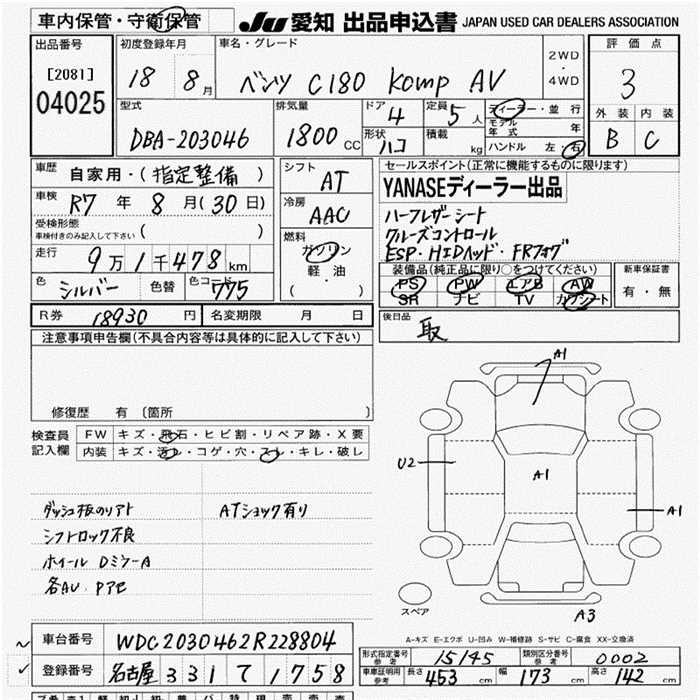 車内保管・守衛保管
JU 愛知 出品申込書 JAPAN USED CAR DEALERS ASSOCIATION
出品番号 初度登録年月 車名・グレード 評価点
[2081] 18 8月 ベンツ C180 Komp AV 2WD・4WD 3
04025
型式 排気量 ドア 4 定員 5人 ディーラー・並行 外装 内装
DBA-203046 1800cc 形状 ハコ 積載 kg モデル年式 年 B C
ハンドル 左・右
車歴 自家用・(指定整備) シフト AT セールスポイント(正常に機能するものに限ります)
車検 R7年8月(30日) 冷房 AAC YANASEディーラー出品
受検形態 ( )
車検付きのみ記入して下さい
ハーフレザーシート
クルーズコントロール
ESP・HIDヘッド・FRフォグ
走行 9万1千478km 燃料 ガソリン 軽油 ( ・ )
色 シルバー 色替 色コード 775
装備品(純正品に限り○をつけてください) 新車保証書
PS PW エアB AW 有・無
SR ナビ TV カワシート
R券 18930円 名変期限 月 日 後日品 取
注意事項申告欄(不具合内容等は具体的に記入して下さい)
修復歴 有 (箇所 )
検査員記入欄 FW キズ・飛石・ヒビ割・リペア跡・X要
内装 キズ・汚レ・コゲ・穴・スレ・キレ・破レ
A1
U2
A1
A1
A3
ATショック有り
シフトロック不良
ホイール
スペア
A-キズ E-エクボ U-凹み W-補修跡 S-サビ C-腐食 XX-交換済
車台番号 WDC2030462R228804
登録番号 名古屋 331 て 1758
形式指定番号 参考 15145 類別区分番号 参考 0002
車庫証明用 参考 長さ 453cm 幅 173cm 高さ 142cm